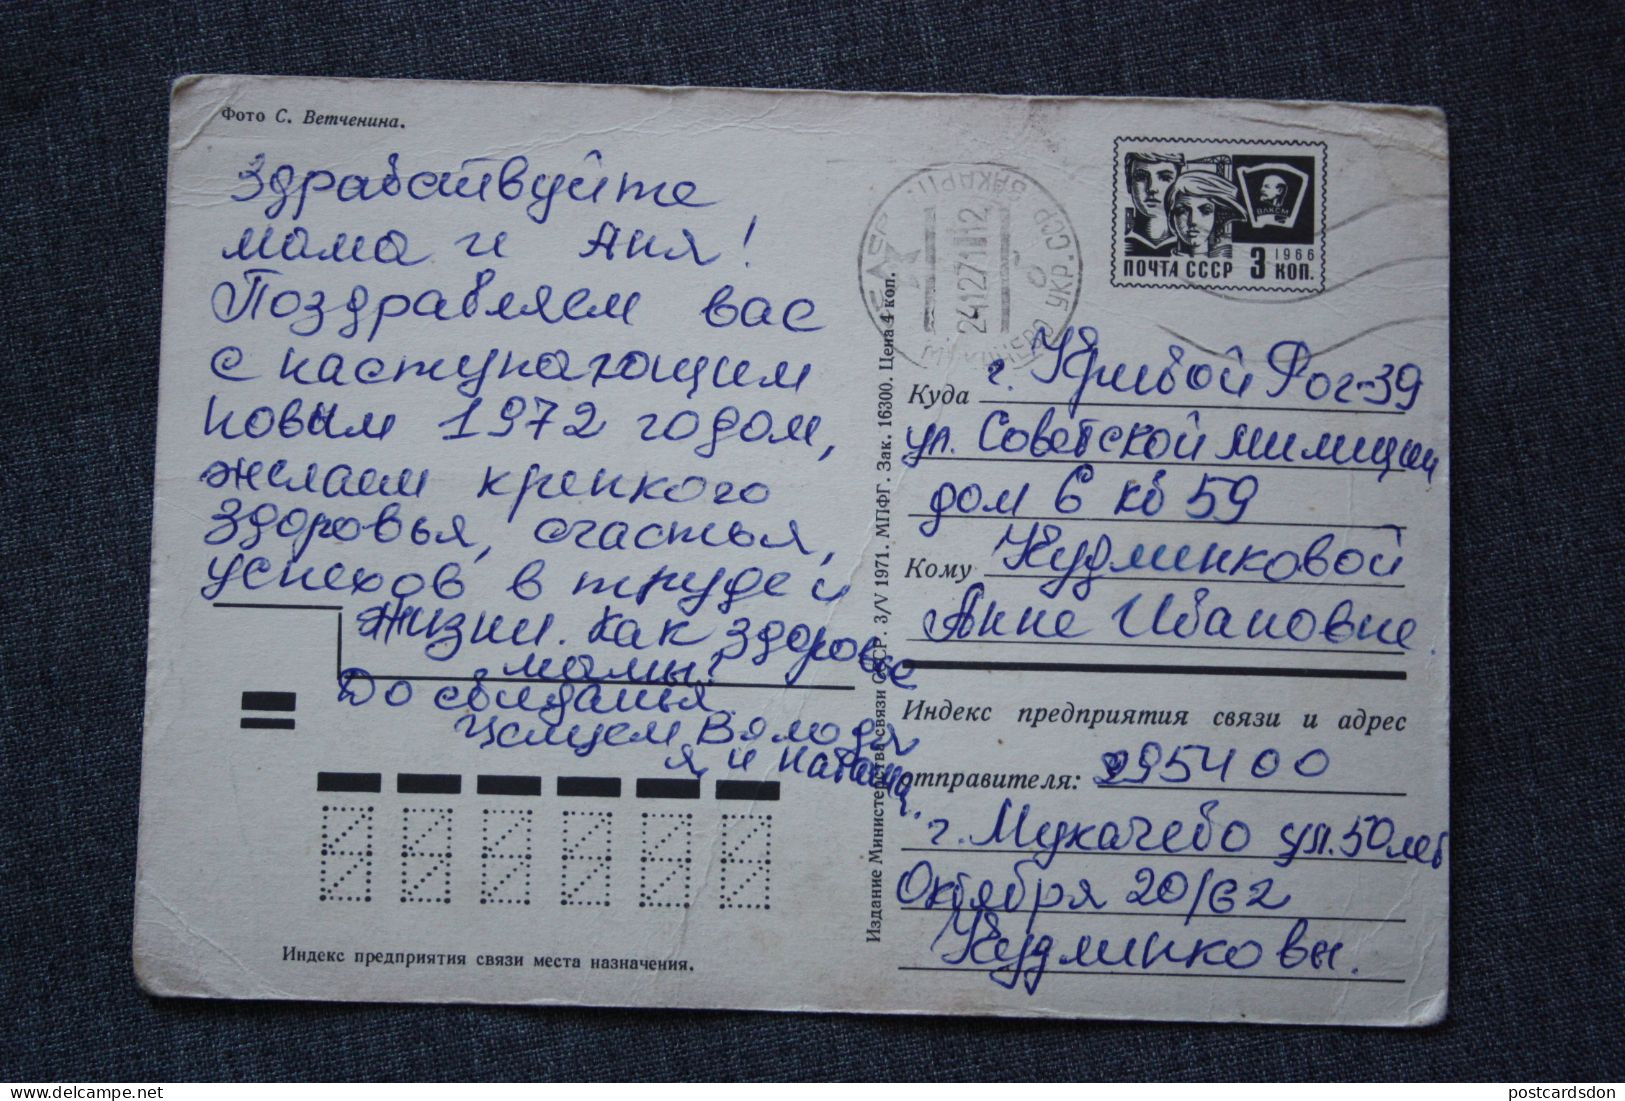 Фото С. Ветченина.
Здравствуйте
мама и Аня!
Поздравляем вас
с наступающим
новым 1972 годом,
желаем крепкого
здоровья, счастья,
успехов в труде и
жизни. Как здоровье
мамы?
До свиданья.
Целуем Володя
я и Наташа.
Индекс предприятия связи места назначения.
Издание Министерства связи СССР. 3/V 1971. МПФГ. Зак. 16300. Цена 4 коп.
24127112
УКР. ССР ЗАКАРП.
ВЛКСМ
1966
ПОЧТА СССР 3 КОП.
Куда г. Кривой Рог-39
ул. Советской милиции
дом 6 кв 59
Кому Кудминковой
Анне Ивановне.
Индекс предприятия связи и адрес
отправителя: 295400
г. Мукачево ул. 50 лет
Октября 20/62
Кудминковы.
postcardsdon
Delcampe.net